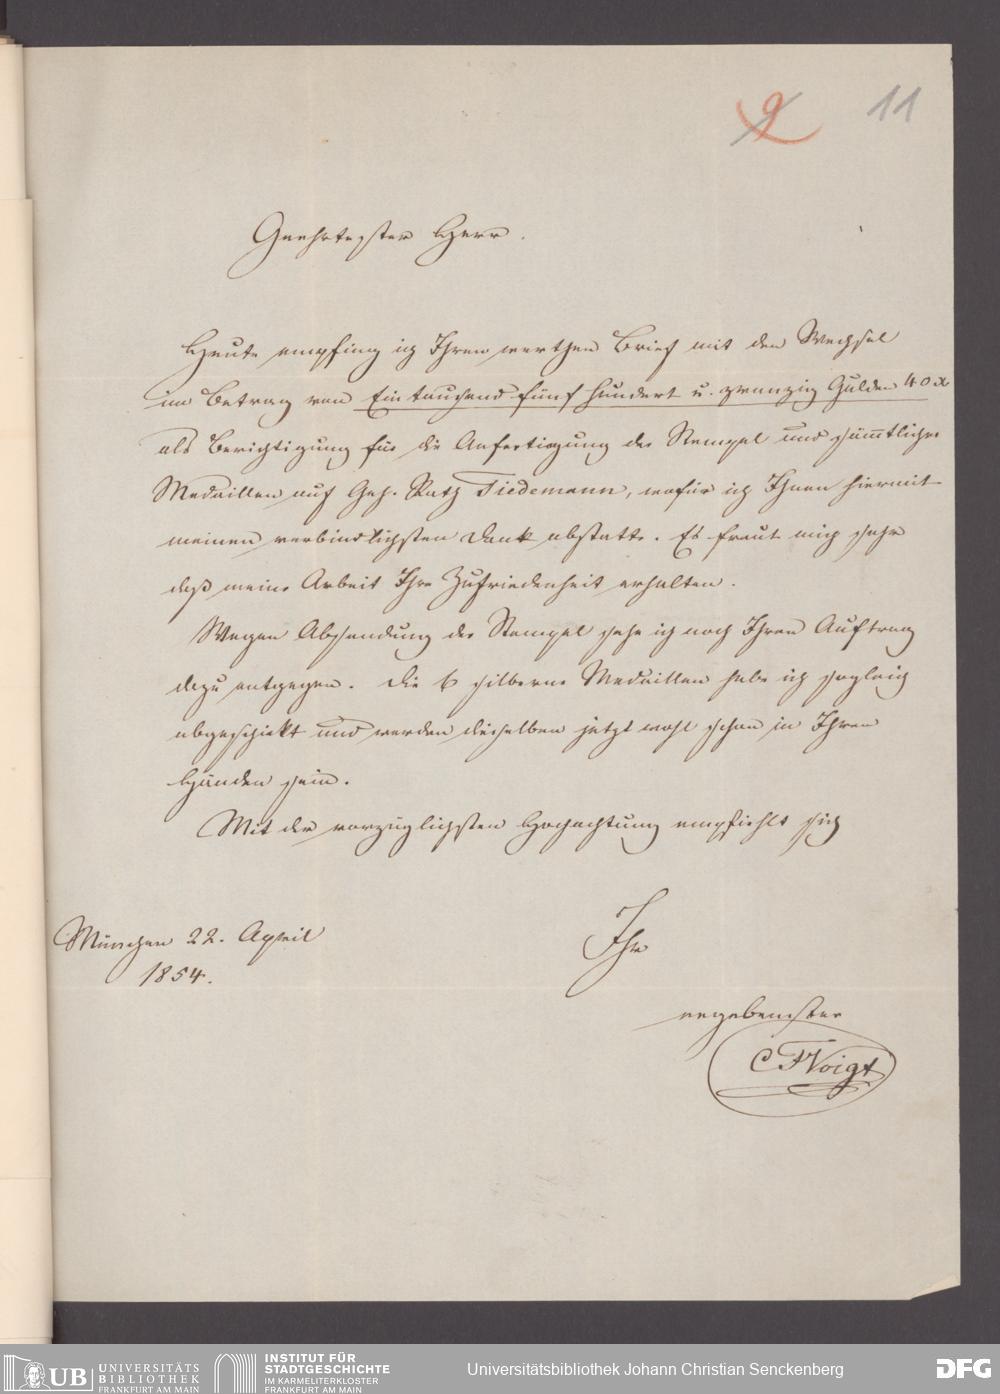 9
11
Geehrtester Herr.
Heute empfing ich Ihren werthen Brief mit den Wechsel
im Betrag von Ein tausend fünf hundert u. zwanzig Gulden 40 x
als Berichtigung für die Anfertigung der Stempel und sämtlicher
Medaillen auf Geh. Rath Tiedemann, wofür ich Ihnen hiermit
meinen verbindlichsten Dank abstatte. Es freut mich sehr
daß meine Arbeit Ihre Zufriedenheit erhalten.
Wegen Absendung der Stempel sehe ich noch Ihren Auftrag
dazu entgegen. Die 6 silberne Medaillen habe ich sogleich
abgeschickt und werden dieselben jetzt wohl schon in Ihren
Händen sein.
Mit der vorzüglichsten Hochachtung empfiehlt sich
München 22. April
1854.
Ihr
ergebenster
C F Voigt
UB UNIVERSITÄTS BIBLIOTHEK FRANKFURT AM MAIN
INSTITUT FÜR STADTGESCHICHTE IM KARMELITERKLOSTER FRANKFURT AM MAIN
Universitätsbibliothek Johann Christian Senckenberg
DFG